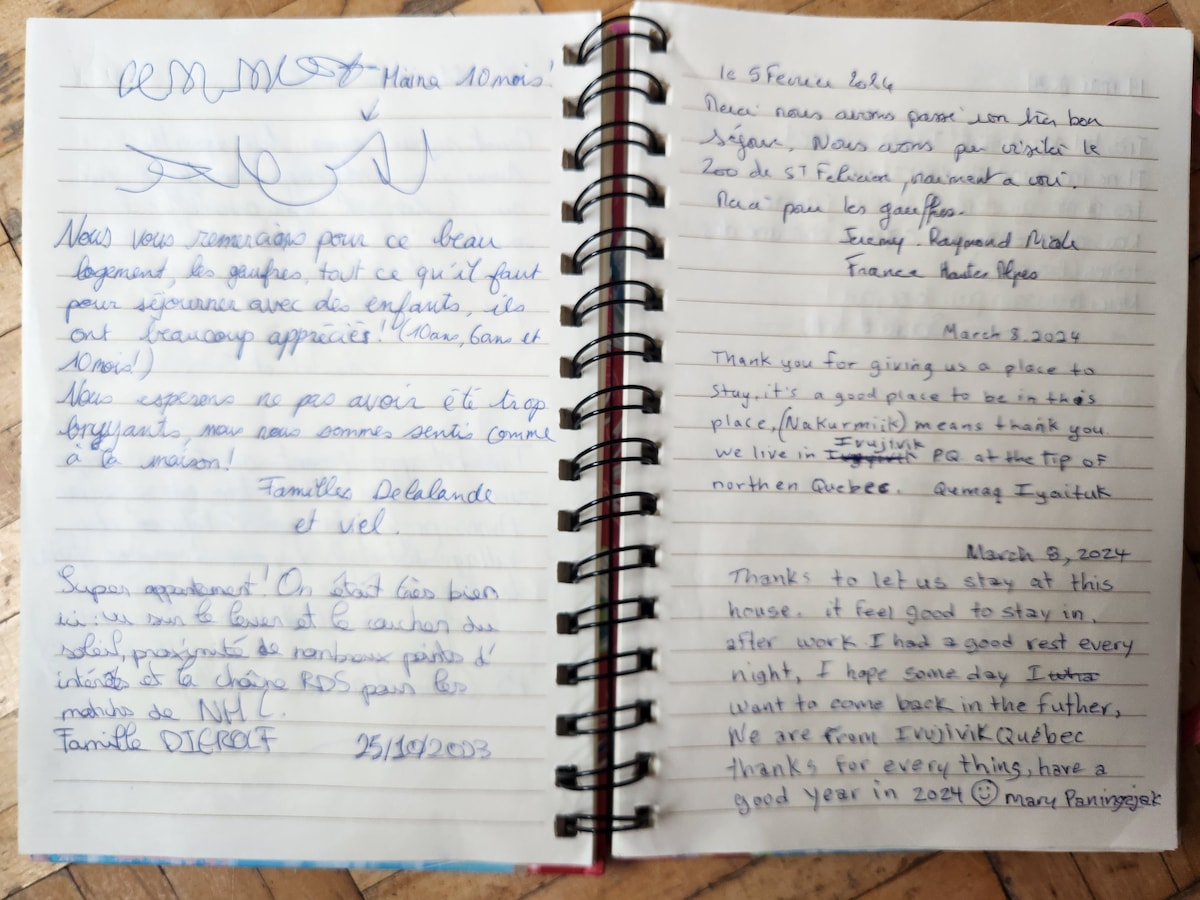 Maïna 10 mois!
Nous vous remercions pour ce beau
logement, les gaufres, tout ce qu'il faut
pour séjourner avec des enfants, ils
ont beaucoup appréciés! (10ans, 6ans et
10mois!)
Nous esperons ne pas avoir été trop
bruyants, mais nous sommes sentis comme
à la maison!
Familles Delalande
et viel.
Super appartement! On était très bien
ici: vu sur le lever et le coucher du
soleil, proximité de nombreux points d'
intérêts et la chaîne RDS pour les
matchs de NHL.
Famille 25/10/2023
le 5 Fevrier 2024
Merci nous avons passé un très bon
séjour, Nous avons pu visiter le
Zoo de ST Felicien, vraiment a voir.
Merci pour les gauffres.
Jeremy. Raymond
France Hautes Alpes
March 8, 2024
Thank you for giving us a place to
stay, it's a good place to be in this
place, (Nakurmiik) means thank you
we live in Ivujivik PQ at the tip of
northen Quebec. Qumaq Iyaituk
March 8, 2024
Thanks to let us stay at this
house. it feel good to stay in.
after work I had a good rest every
night, I hope some day I
want to come back in the futher,
We are from Ivujivik Québec
thanks for every thing, have a
good year in 2024 ☺ Mary Paningajak